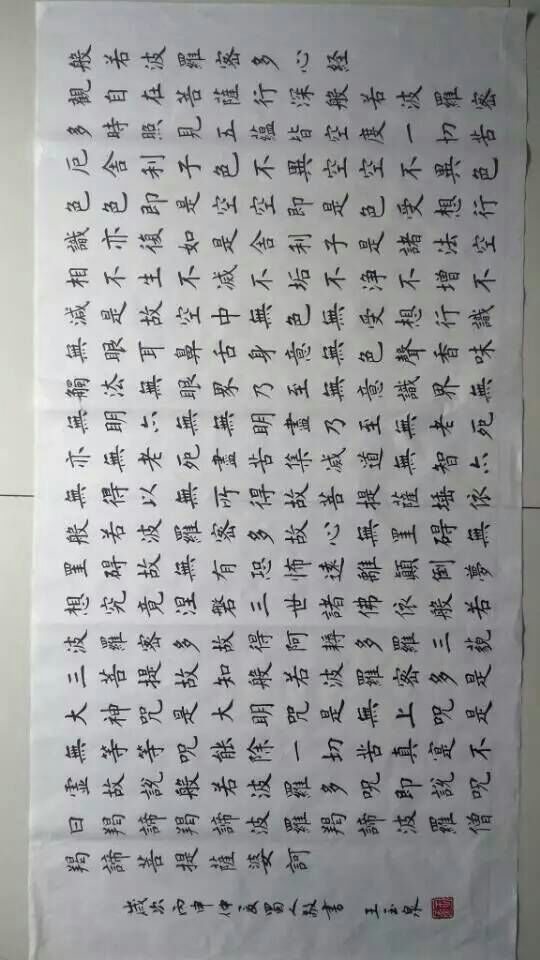 般若波羅蜜多心経
觀自在菩薩行深般若波羅蜜
多時照見五蘊皆空度一切苦
厄舍利子色不異空空不異色
色色即是空空即是色受想行
識亦復如是舍利子是諸法空
相不生不滅不垢不淨不增不
減是故空中無色無受想行識
無眼耳鼻舌身意無色聲香味
觸法無眼界乃至無意識界無
無明亦無無明盡乃至無老死
亦無老死盡苦集滅道無智亦
無得以無所得故菩提薩埵依
般若波羅蜜多故心無罣礙無
罣礙故無有恐怖遠離顛倒夢
想究竟涅磐三世諸佛依般若
波羅蜜多故得阿耨多羅三藐
三菩提故知般若波羅蜜多是
大神咒是大明咒是無上咒是
無等等咒能除一切苦真寔不
虛故說般若波羅多咒即說咒
曰羯諦羯諦波羅羯諦波羅僧
羯諦菩提薩婆訶
歲次丙申仲夏蜀人敬書 王玉泉